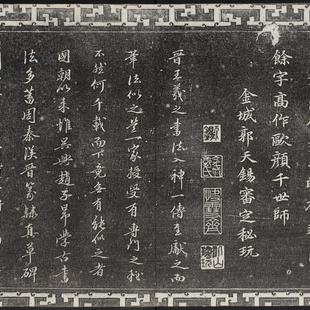 餘字高作歐顏千世師
金城郭天錫審定秘玩
晉王羲之書法入神一傳至獻之而
筆法似之葢一家授受有專門之
不然何千載而下竟無有能似之者
國朝以來惟吳興趙子昂學古書
法多蓄周秦漢晉篆隸真草碑